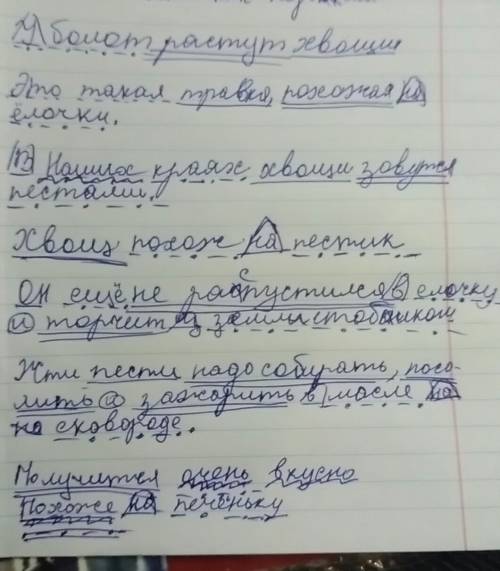 У болот растут хвощи
Это такая травка, похожая на
ёлочки.
В Наших краях хвощи зовутся
пестами.
Хвощ похож на пестик
Он ещё не распустился в елочку
и торчит из земли столбиком
Эти пести надо собирать, посо-
лить и зажарить в масле на
на сковороде.
Получится очень вкусно
Похоже на печёньку